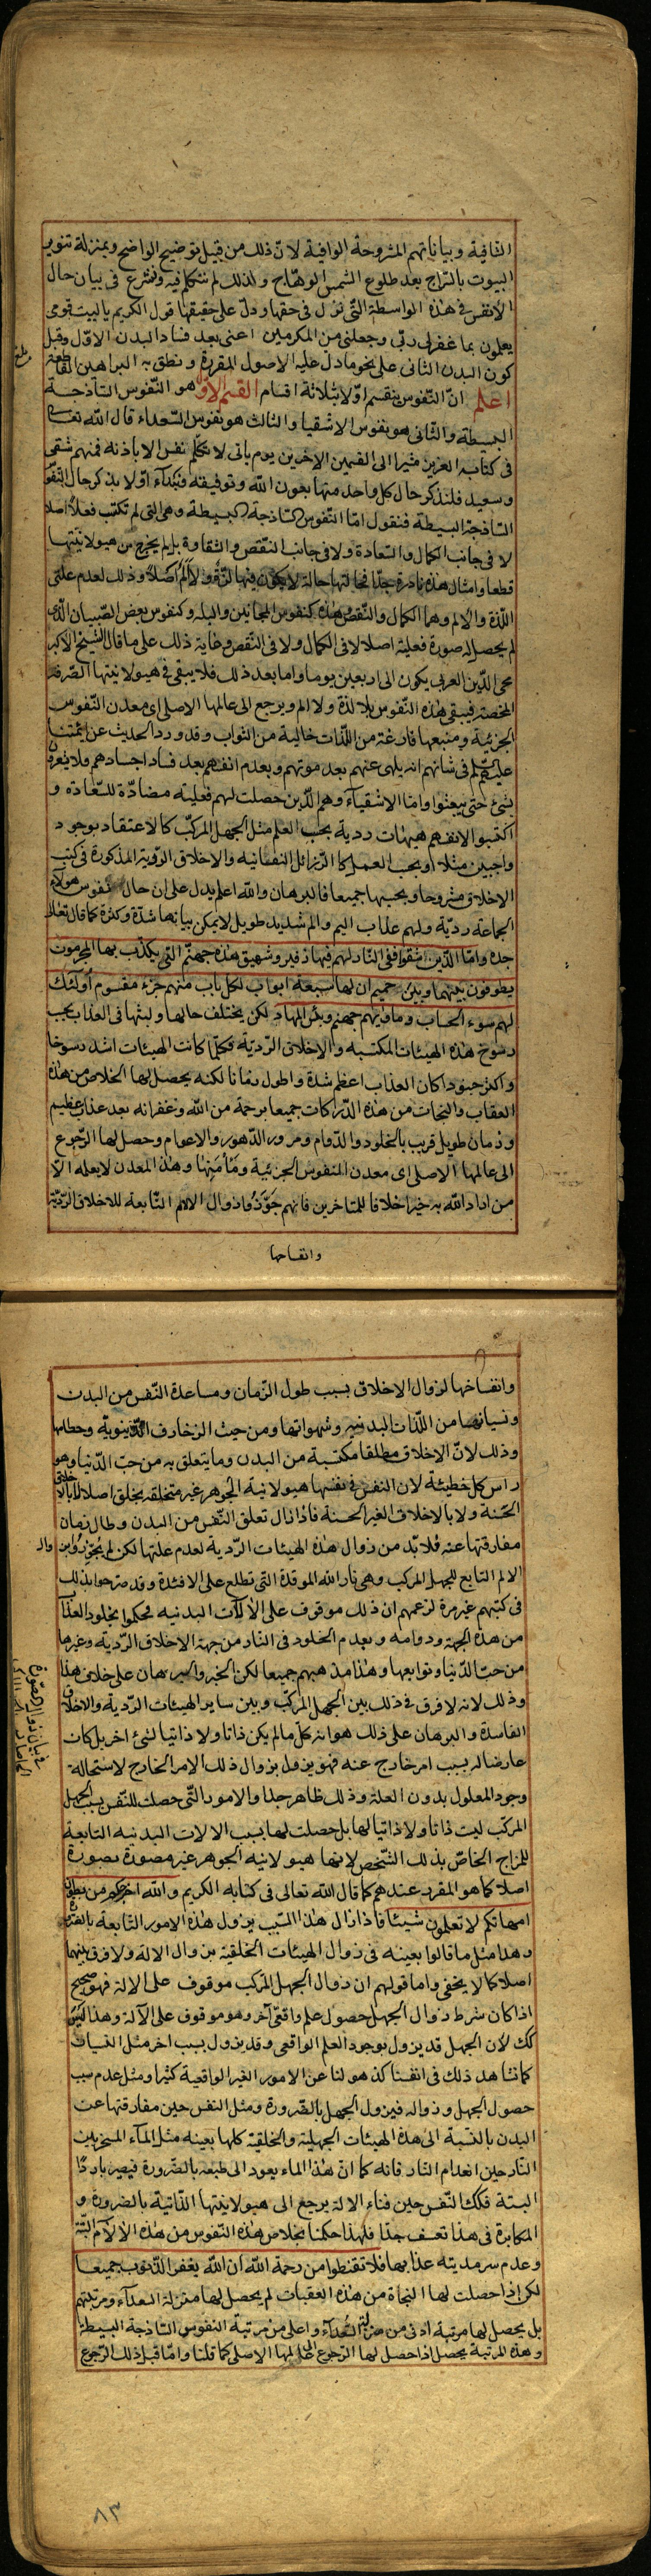 الشافية وبياناتهم المشروحة الوافية لانّ ذلك من قبيل توضيح الواضح وبمنزلة تنوير
البيوت بالسّراج بعد طلوع الشمس الوهّاج ولذلك لم نتكلم فيه ونشرع فى بيان حال
الانفس فى هذه الواسطة التى نزل فى حقها ودلّ على حقيقتها قول الكريم ياليت قومى
يعلمون بما غفرلى ربّى وجعلنى من المكرمين اعنى بعد فساد البدن الاوّل وقبل
كون البدن الثانى على نحو ما دلّ عليه الاصول المقررة ونطق به البراهين القاطعة
اعلم انّ النّفوس ينقسم اوّلا بثلاثة اقسام القسم الاوّل هو النّفوس السّاذجة
البسيطة والثّانى هو نفوس الاشقيا والثالث هو نفوس السّعداء قال الله تعالى
فى كتابه العزيز مشيرا الى القسمين الاخرين يوم ياتى لا تكلّم نفس الا باذنه فمنهم شقى
وسعيد فلنذكر حال كل واحد منها بعون الله وتوفيقه ونبدأ اوّلا بذكر حال النّفوس
السّاذجة البسيطة فنقول امّا النّفوس السّاذجة البسيطة وهى التى لم تكتسب فعلاً اصلا
لا فى جانب الكمال والسّعادة ولا فى جانب النّقص والشقاوة بل لم يخرج من هيولانيّتها
قطعا وامثال هذه نادرة جدّا فحالتها حالة لا يكون فيها لذّة ولا الم اصلا وذلك لعدم علّتى
اللّذة والالم وهما الكمال والنّقص وهذه كنفوس المجانين والبله وكنفوس بعض الصّبيان الّذى
لم يحصل له صورة فعلية اصلا لا فى الكمال ولا فى النّقص وغاية ذلك على ما قال الشيخ الاكبر
محى الدّين العربى يكون الى اربعين يوما واما بعد ذلك فلا يبقى فى هيولانيتها الصّرفة
المحضة فيبقى هذه النّفوس بلا لذّة ولا الم ويرجع الى عالمها الاصلى اى معدن النّفوس
الجزئيّة ومنبعها فارغة من اللّذات خالية من الثواب وقد ورد الحديث عن ائمّتنا
عليهم السلام فى شانهم انه يلهى عنهم بعد موتهم ويعدم انفسهم بعد فساد اجسادهم ولا يشعرون
بشئ حتى يبعثوا وامّا الاشقياء وهم الّذين حصلت لهم فعلية مضادّة للسّعادة و
اكتسبوا لانفسهم هيئات ردية بحسب العلم مثل الجهل المركّب كالاعتقاد بوجود
واجبين مثلا او بحسب العمل كالرّذائل النفسانيه والاخلاق الرّدية المذكورة فى كتب
الاخلاق مشروحا وبحسبها جميعا فالبرهان والله اعلم يدل على ان حال نفوس هؤلاء
الجماعة رديّة ولهم عذاب اليم والم شديد طويل لا يمكن بيانها شدّة وكثرة كما قال تعالى
جده وامّا الّذين شقوا ففى النّار لهم فيها زفير وشهيق هذه جهنّم التى يكذّب بها المجرمون
يطوفون بينها وبين حميم ان لها سبعة ابواب لكل باب منهم جزء مقسوم اولئك
لهم سوء الحساب وماويهم جهنم وبئس المهاد لكن يختلف حالها ولبثها فى العذاب بحسب
رسوخ هذه الهيئات المكتسبه والاخلاق الرّديّة فكلّما كانت الهيئات اشد رسوخا
واكثر جنودا كان العذاب اعظم شدّة واطول زمانا لكنه يحصل لها الخلاص من هذه
العقاب والنجات من هذه الدّركات جميعا برحمة من الله وغفرانه بعد عذاب عظيم
وزمان طويل قريب بالخلود والدّوام ومرور الدّهور والاعوام وحصل لها الرّجوع
الى عالمها الاصلى اى معدن النفوس الجزئية ومأمنها وهذا المعدن لا يعلمه الّا
من اراد الله به خيرا خلافا للمتاخرين فانهم جوّزوا زوال الالم التّابعة للاخلاق الرّديّة
وانفساخها
وانفساخها لزوال الاخلاق بسبب طول الزّمان ومباعدة النّفس من البدن
ونسيانها من اللّذات البدنيه وشهواتها ومن حيث الزخارف الدّنيويّة وحطامها
وذلك لانّ الاخلاق مطلقا مكتسبة من البدن وما يتعلق به من حبّ الدّنيا وهو
راس كل خطيئة لان النفس فى نفسها هيولانية الجوهر غير متخلقه بخلق اصلا لا بالاخلاق
الحسنة ولا بالاخلاق الغير الحسنة فاذا زال تعلق النّفس من البدن وطال زمان
مفارقتها عنه فلا بدّ من زوال هذه الهيئات الرّدية لعدم علتها لكن لم يجوّزوا زوال
الالم التابع للجهل المركب وهى نار الله الموقدة التى تطلع على الافئدة وقد صرحوا بذلك
فى كتبهم غير مرة لزعمهم ان ذلك موقوف على الالات البدنيه فحكموا بخلود العذاب
من هذه الجهة ودوامه وبعدم الخلود فى النار من جهة الاخلاق الرّدية وغيرها
من حبّ الدّنيا وتوابعها وهذا مذهبهم جميعا لكن الخبر والبرهان على خلاف هذا
وذلك لانه لا فرق فى ذلك بين الجهل المركّب وبين ساير الهيئات الرّدية والاخلاق
الفاسدة والبرهان على ذلك هو انه كلّ ما لم يكن ذاتا ولا ذاتيا لشئ اخر بل كان
عارضا له بسبب امر خارج عنه فهو يزول بزوال ذلك الامر الخارج لاستحالة
وجود المعلول بدون العلة وذلك ظاهر جدا والامور التّى حصلت للنّفس بسبب الجهل
المركّب ليست ذاتا ولا ذاتيا لها بل حصلت لها بسبب الالات البدنيه التابعة
للمزاج الخاصّ بذلك الشّخص لانها هيولانية الجوهر غير مصورة بصورة
اصلا كما هو المقرر عندهم كما قال الله تعالى فى كتابه الكريم والله اخرجكم من بطون
امهاتكم لا تعلمون شيئا فاذا زال هذا السّبب يزول هذه الامور التابعة بالضرورة
وهذا مثل ما قالوا بعينه فى زوال الهيئات الخلقية بزوال الالة ولا فرق بينهما
اصلا كما لا يخفى واما قولهم ان زوال الجهل المركب موقوف على الالة فهو صحيح
اذا كان شرط زوال الجهل حصول علم واقعى آخر وهو موقوف على الآلة وهذا ليس
كك لان الجهل قد يزول بوجود العلم الواقعى وقد يزول بسبب اخر مثل النسيان
كما نشاهد ذلك فى انفسنا كذهولنا عن الامور الغير الواقعية كثيرا ومثل عدم سبب
حصول الجهل وزواله فيزول الجهل بالضّرورة ومثل النفس حين مفارقتها عن
البدن بالنّسبة الى هذه الهيئات الجهلية والخلقية كلها بعينه مثل المآء المسخّن بين
النّار حين انعدام النّار فانه كما انّ هذا الماء يعود الى طبعه بالضّرورة فيصير باردًا
البتة فكك النّفس حين فناء الالة يرجع الى هيولانيتها الذّاتية بالضرورة و
المكابرة فى هذا تعسف جدّا فلهذا حكمنا بخلاص هذه النّفوس من هذه الالآم البتّة
وعدم سرمديته عذابها فلا تقنطوا من رحمة الله ان الله يغفر الذّنوب جميعا
لكن اذا حصلت لها النجاة من هذه العقبات لم يحصل لها منزلة السعدآء ومرتبتهم
بل يحصل لها مرتبة ادنى من منزلة السّعدآء واعلى من مرتبة النفوس السّاذجة البسيطة
وهذه المرتبة يحصل اذا حصل لها الرّجوع الى عالمها الاصلى كما قلنا وامّا قبل ذلك الرّجوع
٨٣